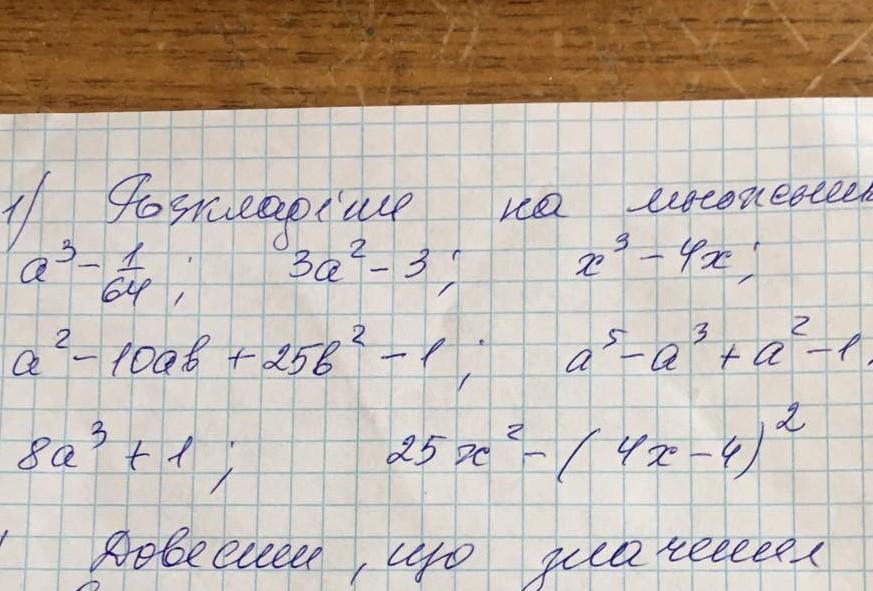 1) Розкладіть на множник
a³ - 1/64 ; 3a² - 3; x³ - 4x;
a² - 10ab + 25b² - 1 ; a⁵ - a³ + a² - 1
8a³ + 1 ; 25x² - (4x - 4)²
Довести, що значення